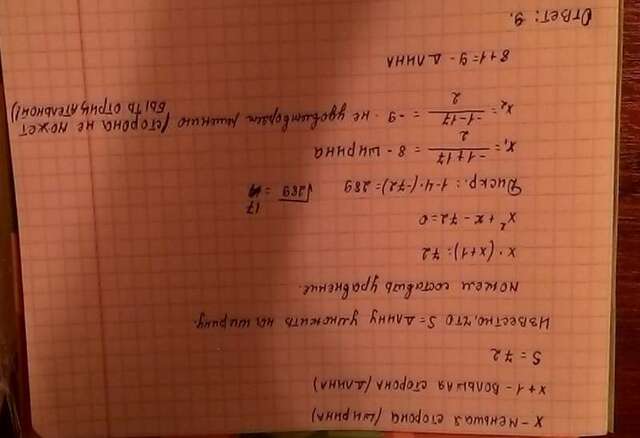 x - меньшая сторона (ширина)
x+1 - большая сторона (длина)
S = 72
Известно, что S = длину умножить на ширину.
можем составить уравнение.
x · (x+1) = 72
x² + x - 72 = 0
Дискр.: 1-4·(-72) = 289 √289 = 17
x₁ = (-1+17)/2 = 8 - ширина
x₂ = (-1-17)/2 = -9 - не удовлетворяет решению (сторона не может быть отрицательной)
8+1 = 9 - длина
Ответ: 9.